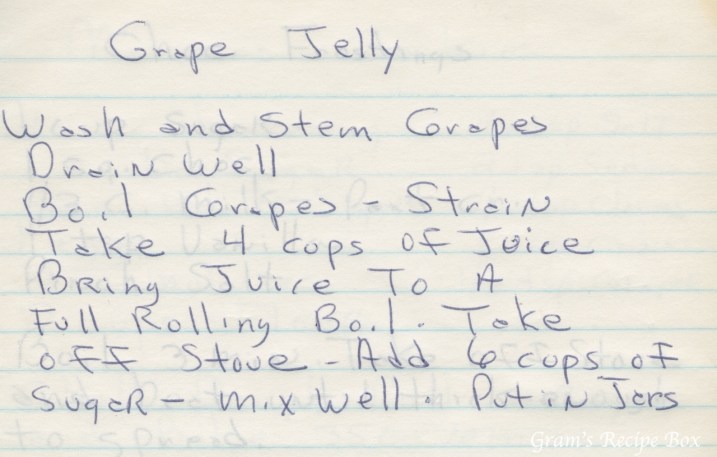 Grape Jelly
Wash and Stem Grapes
Drain Well
Boil Grapes - Strain
Take 4 cups of Juice
Bring Juice To A
Full Rolling Boil. Take
off Stove - Add 6 cups of
Sugar - Mix Well. Put in Jars
to spread.
Gram's Recipe Box